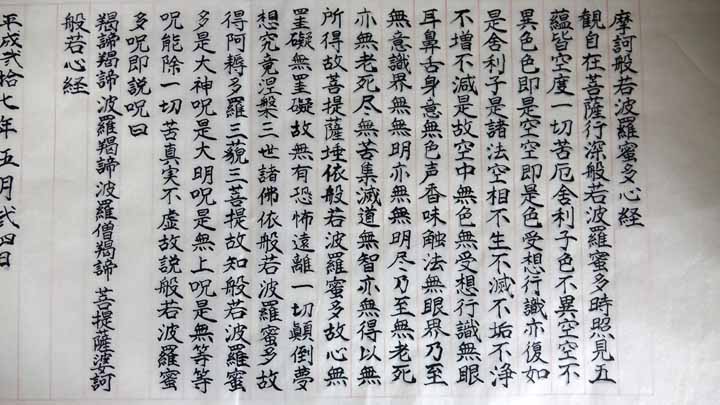 摩訶般若波羅蜜多心経
観自在菩薩行深般若波羅蜜多時照見五
蘊皆空度一切苦厄舍利子色不異空空不
異色色即是空空即是色受想行識亦復如
是舍利子是諸法空相不生不滅不垢不浄
不増不減是故空中無色無受想行識無眼
耳鼻舌身意無色声香味触法無眼界乃至
無意識界無無明亦無無明尽乃至無老死
亦無老死尽無苦集滅道無智亦無得以無
所得故菩提薩埵依般若波羅蜜多故心無
罣礙無罣礙故無有恐怖遠離一切顛倒夢
想究竟涅槃三世諸佛依般若波羅蜜多故
得阿耨多羅三藐三菩提故知般若波羅蜜
多是大神呪是大明呪是無上呪是無等等
呪能除一切苦真実不虚故説般若波羅蜜
多呪即説呪曰
羯諦羯諦 波羅羯諦 波羅僧羯諦 菩提薩婆訶
般若心経
平成弐拾七年五月弐四日